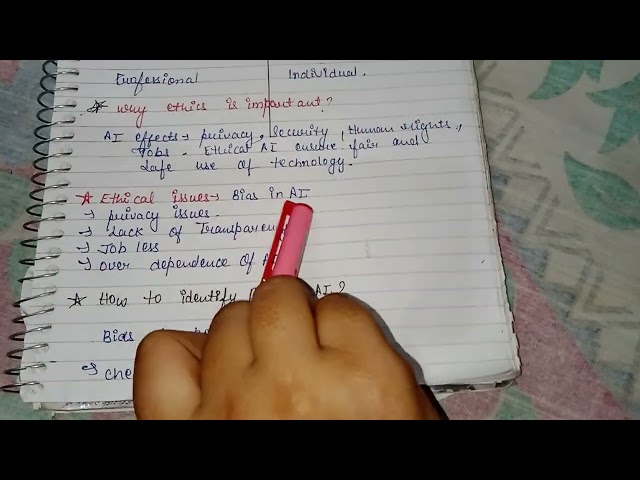 Proffessional Individual.
★ why ethics is important?
AI effects → privacy, security, Human rights,
Jobs. Ethical AI ensure fair and
safe use of technology.
★ Ethical issues → Bias in AI
→ privacy issues.
→ Lack of Transparen
→ Job less
→ over dependence of A
★ How to identify AI?
Bias
→ che